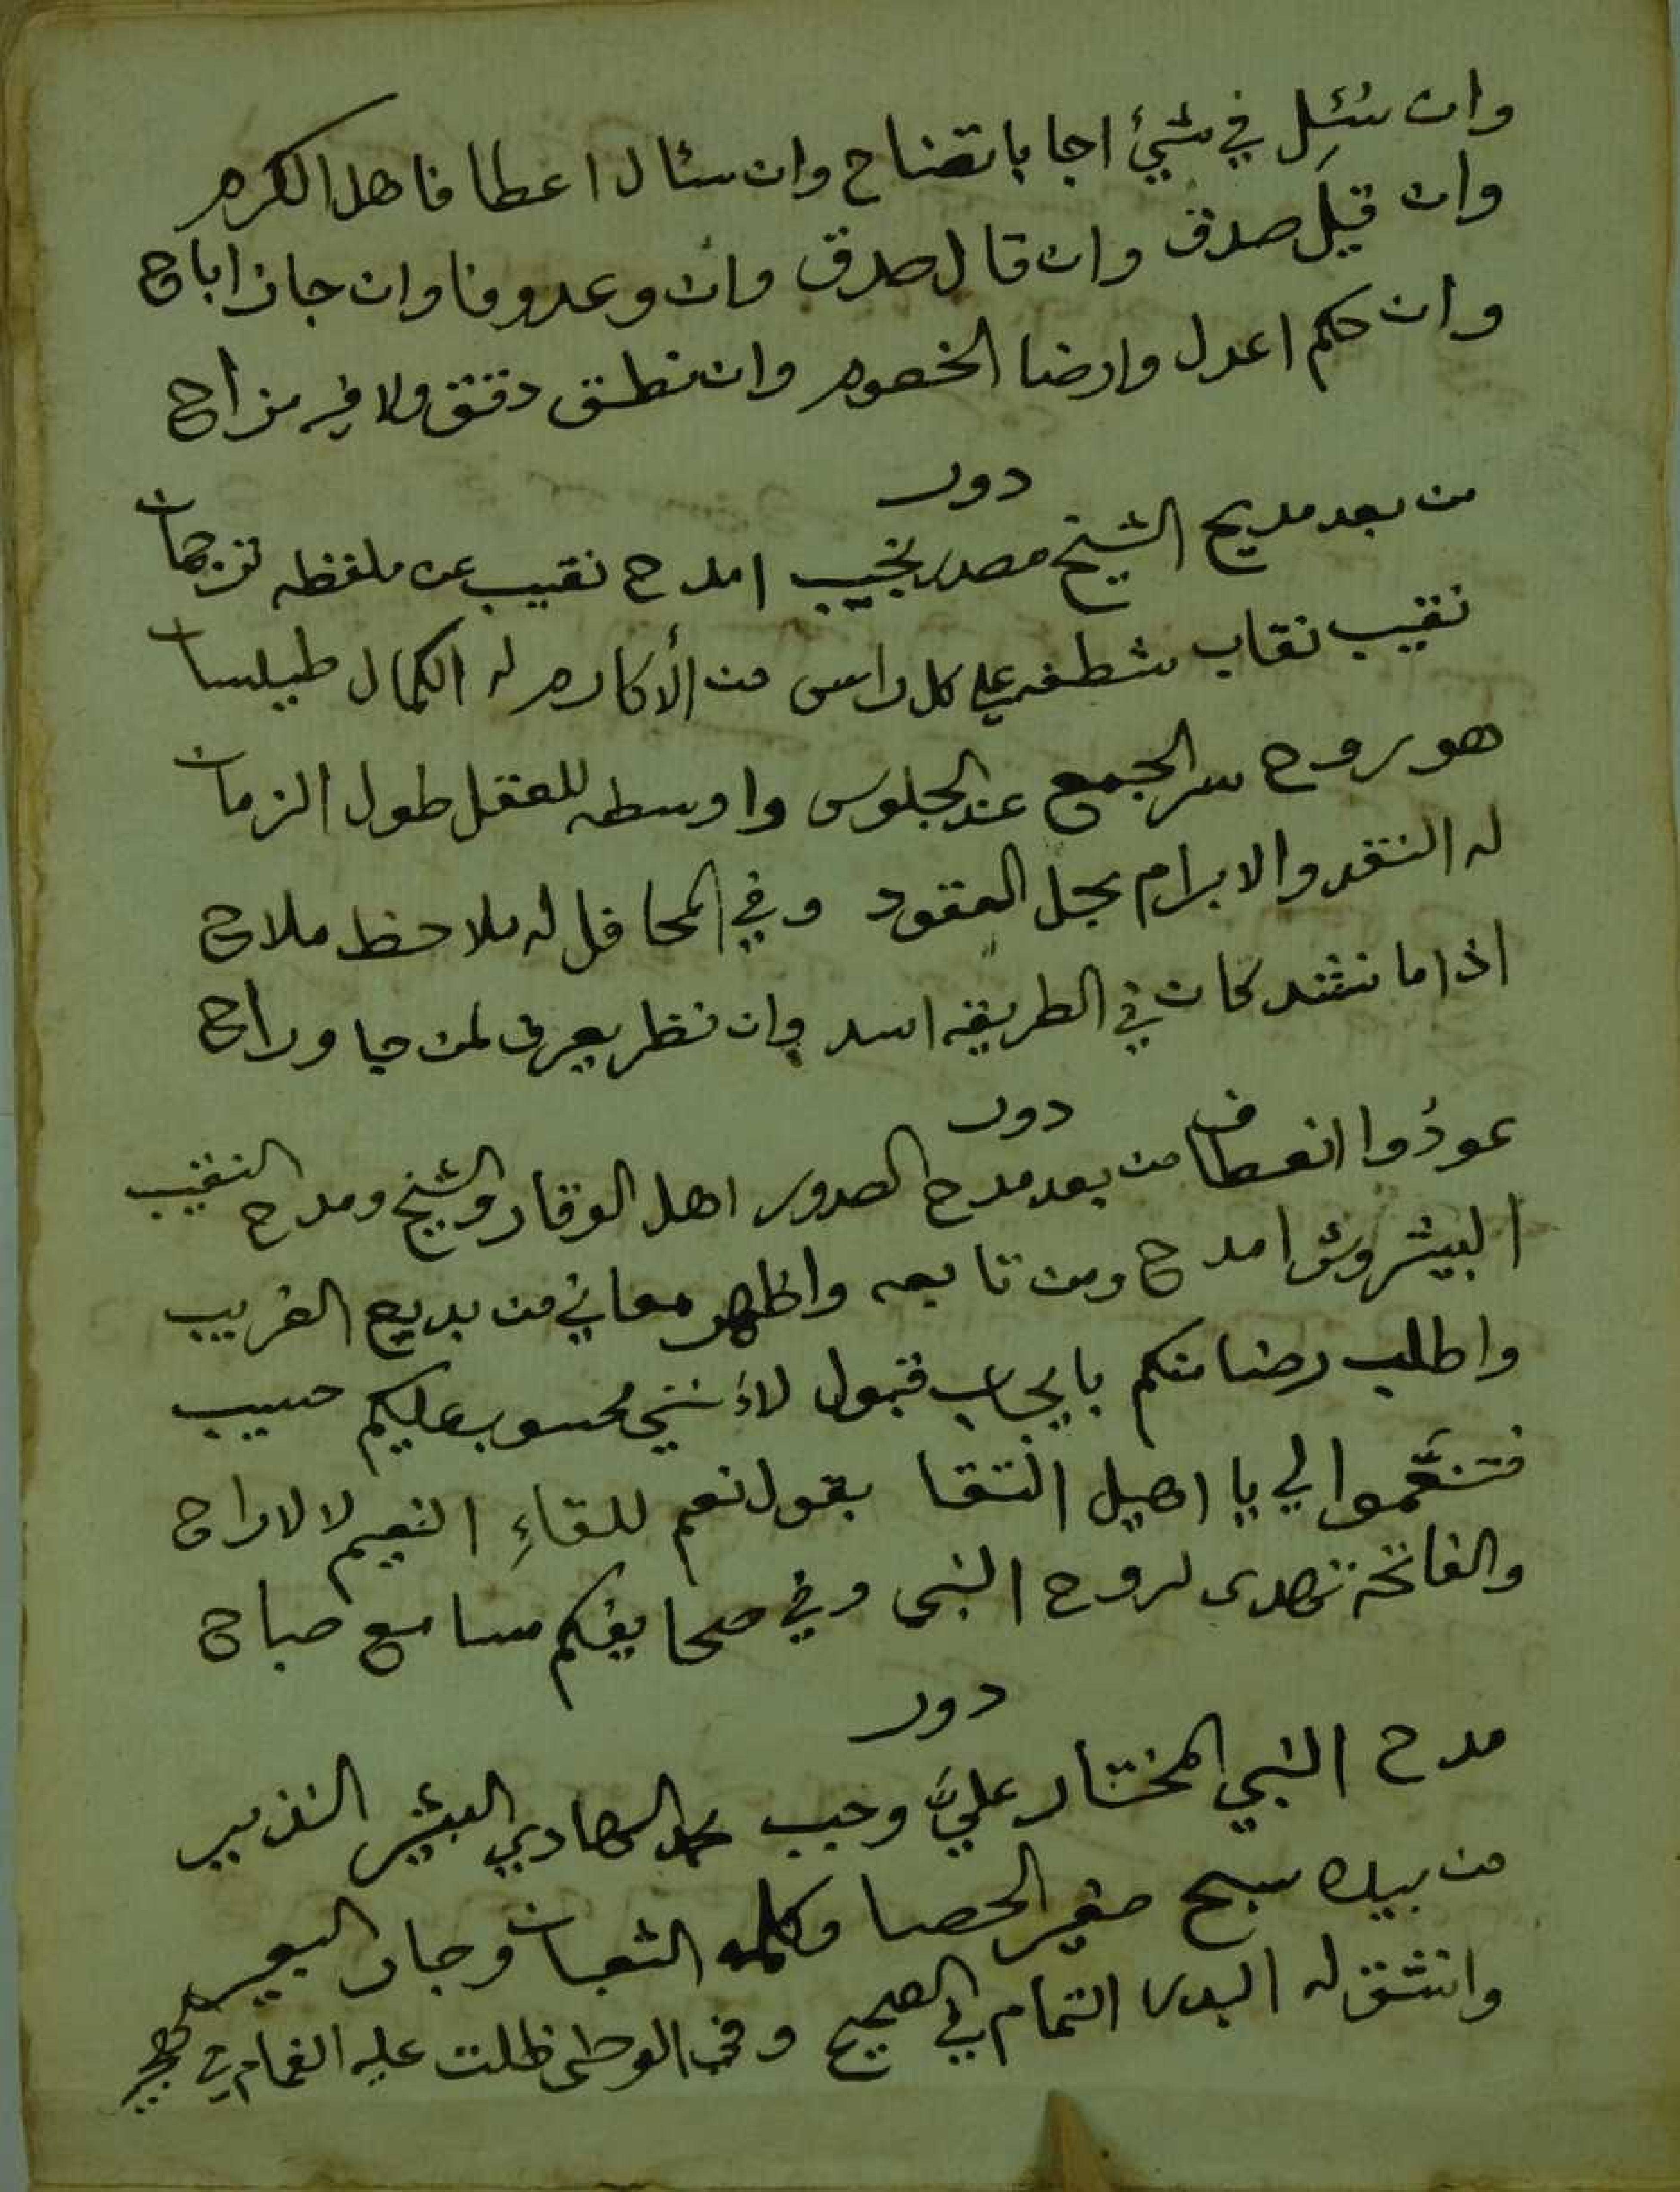 وان سُئِل في شيئ اجا باتضاح وان سئال اعطا فاهل الكرم
وان قيل صدق وان قال صدق وان وعد وفا وان جاز اباح
وان حكم اعدل وارضا الخصوم وان نطق دقق ولا فيه مزاح
دور
من بعد مديح الشيخ مصدر نجيب امدح نقيب عن ملفظه ترجمان
نقيب نقاب شطفه علي كل راس من الأكارم له الكمال طيلسان
هو روح سر الجمع عند الجلوس واوسطه للعقل طول الزمان
له النقد والابرام بحل العقود وفي المحافل له ملاحظ ملاح
اذا ما نشد كان في الطريقه اسد وان نظر يعرف لمن جا وراح
دور
عودُوا انعطاف من بعد مدح الصدور اهل الوقار والشيخ ومدح النقيب
البيشروش امدح ومن تابعه واظهر معاني من بديع الغريب
واطلب رضا منكم بايجاب قبول لاءنني محسوب عليكم حسيب
فتنعَّموا لي يا اهيل التقا بقول نعم للقاءِ النعيم لا لاراح
والفاتحة تهدى لروح النبي وفي صحايفكم مسا مع صباح
دور
مدح النبي المختار عليَّ وجب محمد الهادي البشير النذير
من بيده سبح صغير الحصا وكلمه الثعبان وجار البعير
وانشق له البدر التمام في الصحيح وفي الوطى ظلت عليه الغمام في